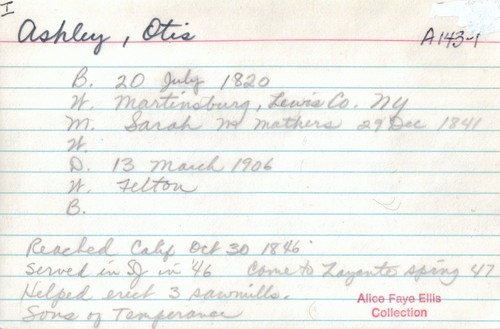 I
Ashley, Otis
A143-1
B. 20 July 1820
W. Martinsburg, Lewis Co. NY
M. Sarah M Mathers 29 Dec 1841
W.
D. 13 March 1906
W. Felton
B.
Reached Calif Oct 30 1846
Served in SJ in '46 Come to Zayante spring 47
Helped erect 3 sawmills.
Sons of Temperance
Alice Faye Ellis
Collection